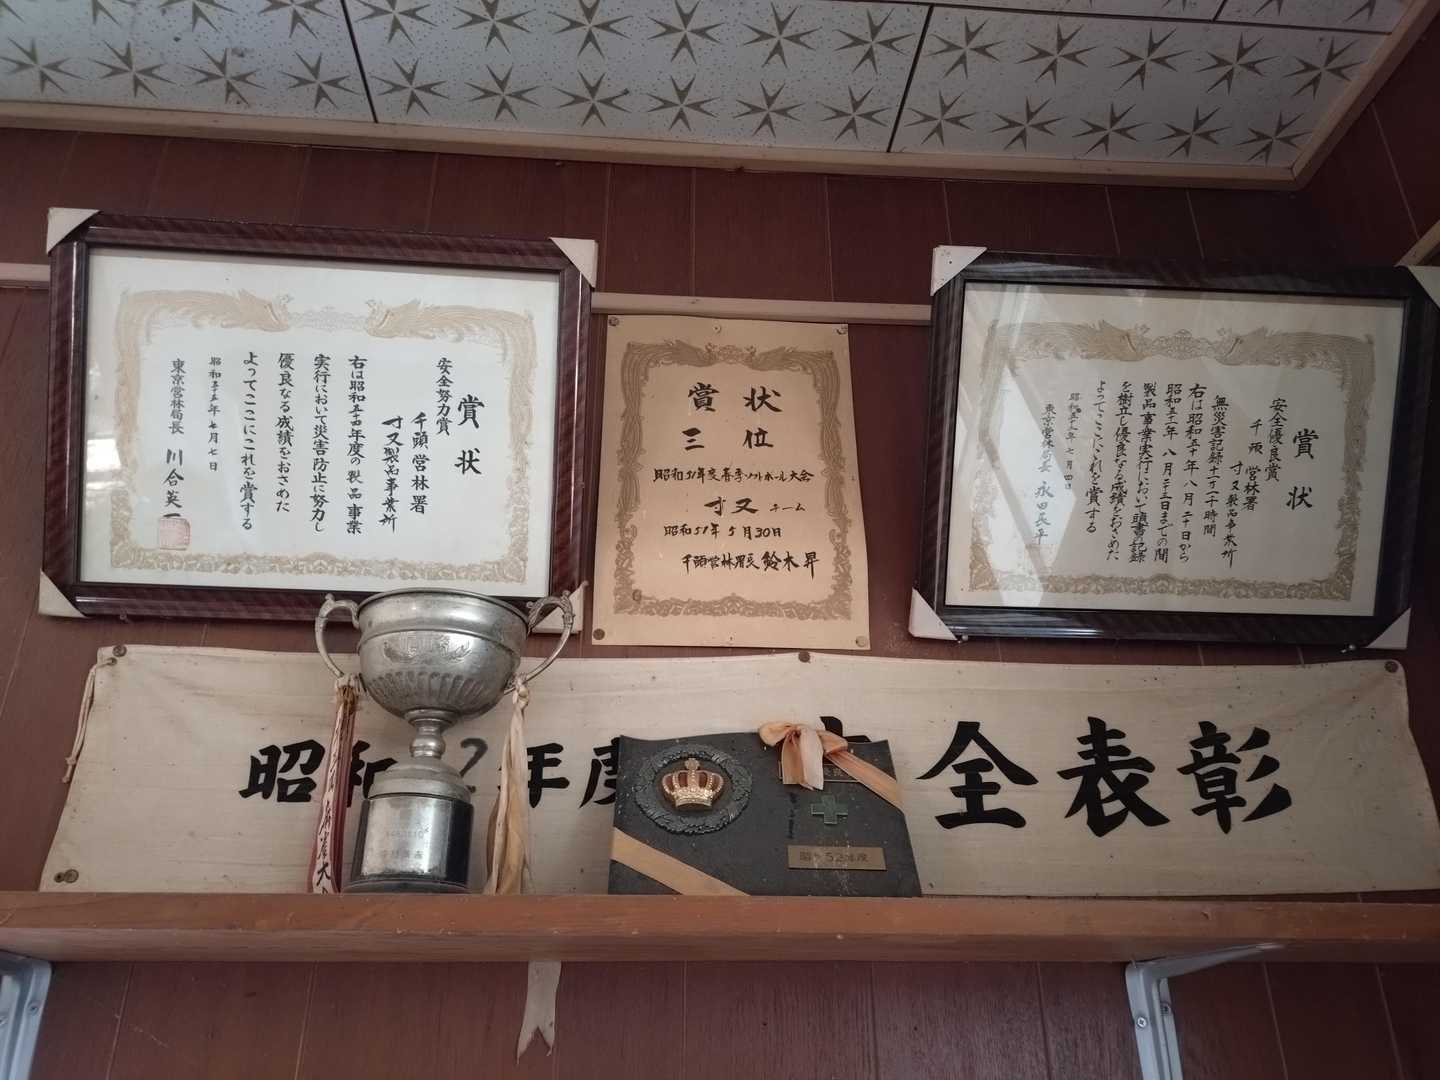 賞状
安全努力賞
千頭営林署
寸又製品事業所
右は昭和五十四年度の製品事業
実行において災害防止に努力し
優良なる成績をおさめた
よってここにこれを賞する
昭和五十五年七月七日
東京営林局長 川合英一
賞状
三位
昭和51年度春季ソフトボール大会
寸又チーム
昭和51年5月30日
千頭営林署長 鈴木昇
賞状
安全優良賞
千頭営林署
寸又製品事業所
無災害記録十二万千時間
右は昭和五十年八月二十日から
昭和五十二年八月二十三日までの間
製品事業実行において頭書の記録
を樹立し優良なる成績をおさめた
よってここにこれを賞する
七月四日
東京営林局長 永田
昭和52年度 安全表彰
昭和52年度